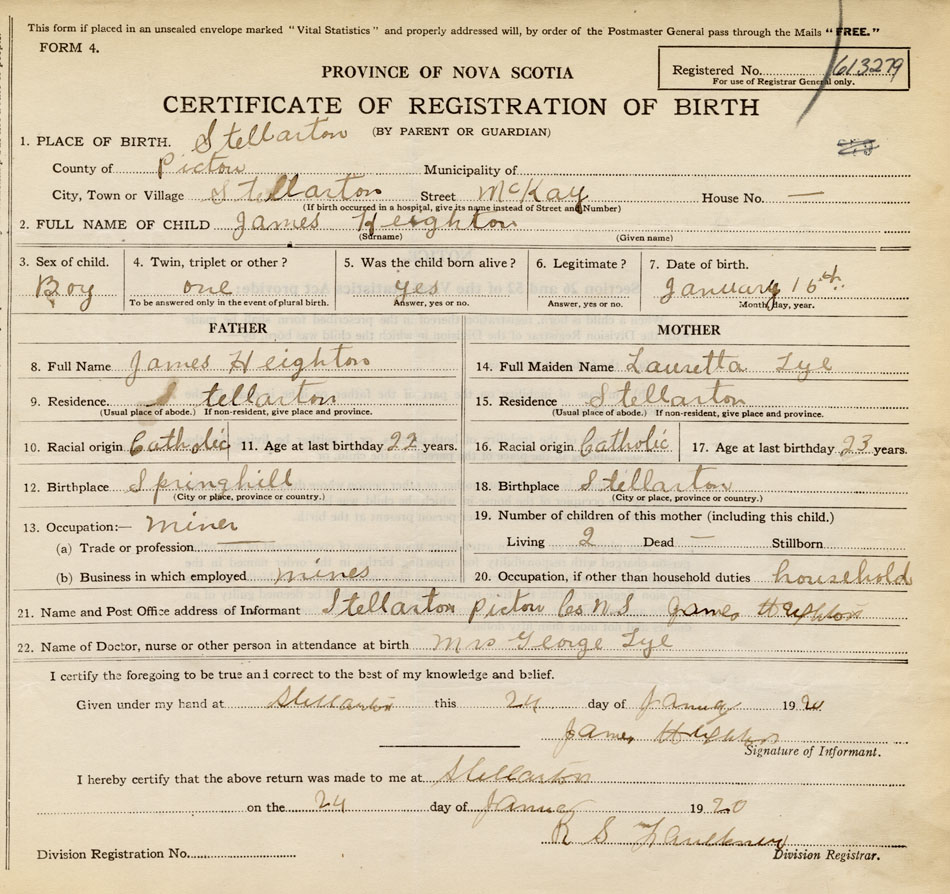 This form if placed in an unsealed envelope marked "Vital Statistics" and properly addressed will, by order of the Postmaster General pass through the Mails "FREE."
FORM 4.
Registered No. 613279
For use of Registrar General only.
PROVINCE OF NOVA SCOTIA
CERTIFICATE OF REGISTRATION OF BIRTH
(BY PARENT OR GUARDIAN)
1. PLACE OF BIRTH. Stellarton
County of Pictou Municipality of
City, Town or Village Stellarton Street McKay House No. —
(If birth occurred in a hospital, give its name instead of Street and Number)
2. FULL NAME OF CHILD James Heighton
(Surname) (Given name)
3. Sex of child. 4. Twin, triplet or other? 5. Was the child born alive? 6. Legitimate? 7. Date of birth.
Boy one yes January 16th
To be answered only in the event of plural birth. Answer, yes or no. Answer, yes or no. Month, day, year.
FATHER MOTHER
8. Full Name James Heighton 14. Full Maiden Name Lauretta Lye
9. Residence. Stellarton 15. Residence Stellarton
(Usual place of abode.) If non-resident, give place and province. (Usual place of abode.) If non-resident, give place and province.
10. Racial origin Catholic 11. Age at last birthday 22 years. 16. Racial origin Catholic 17. Age at last birthday 23 years.
12. Birthplace Springhill 18. Birthplace Stellarton
(City or place, province or country.) (City or place, province or country.)
13. Occupation:— miner 19. Number of children of this mother (including this child.)
(a) Trade or profession — Living 2 Dead — Stillborn
(b) Business in which employed mines 20. Occupation, if other than household duties household
21. Name and Post Office address of Informant Stellarton Pictou Co N S James Heighton
22. Name of Doctor, nurse or other person in attendance at birth Mrs George Lye
I certify the foregoing to be true and correct to the best of my knowledge and belief.
Given under my hand at Stellarton this 24 day of 19
James Heighton
Signature of Informant.
I hereby certify that the above return was made to me at Stellarton
on the 24 day of 1920
R S Faulkner
Division Registrar.
Division Registration No.